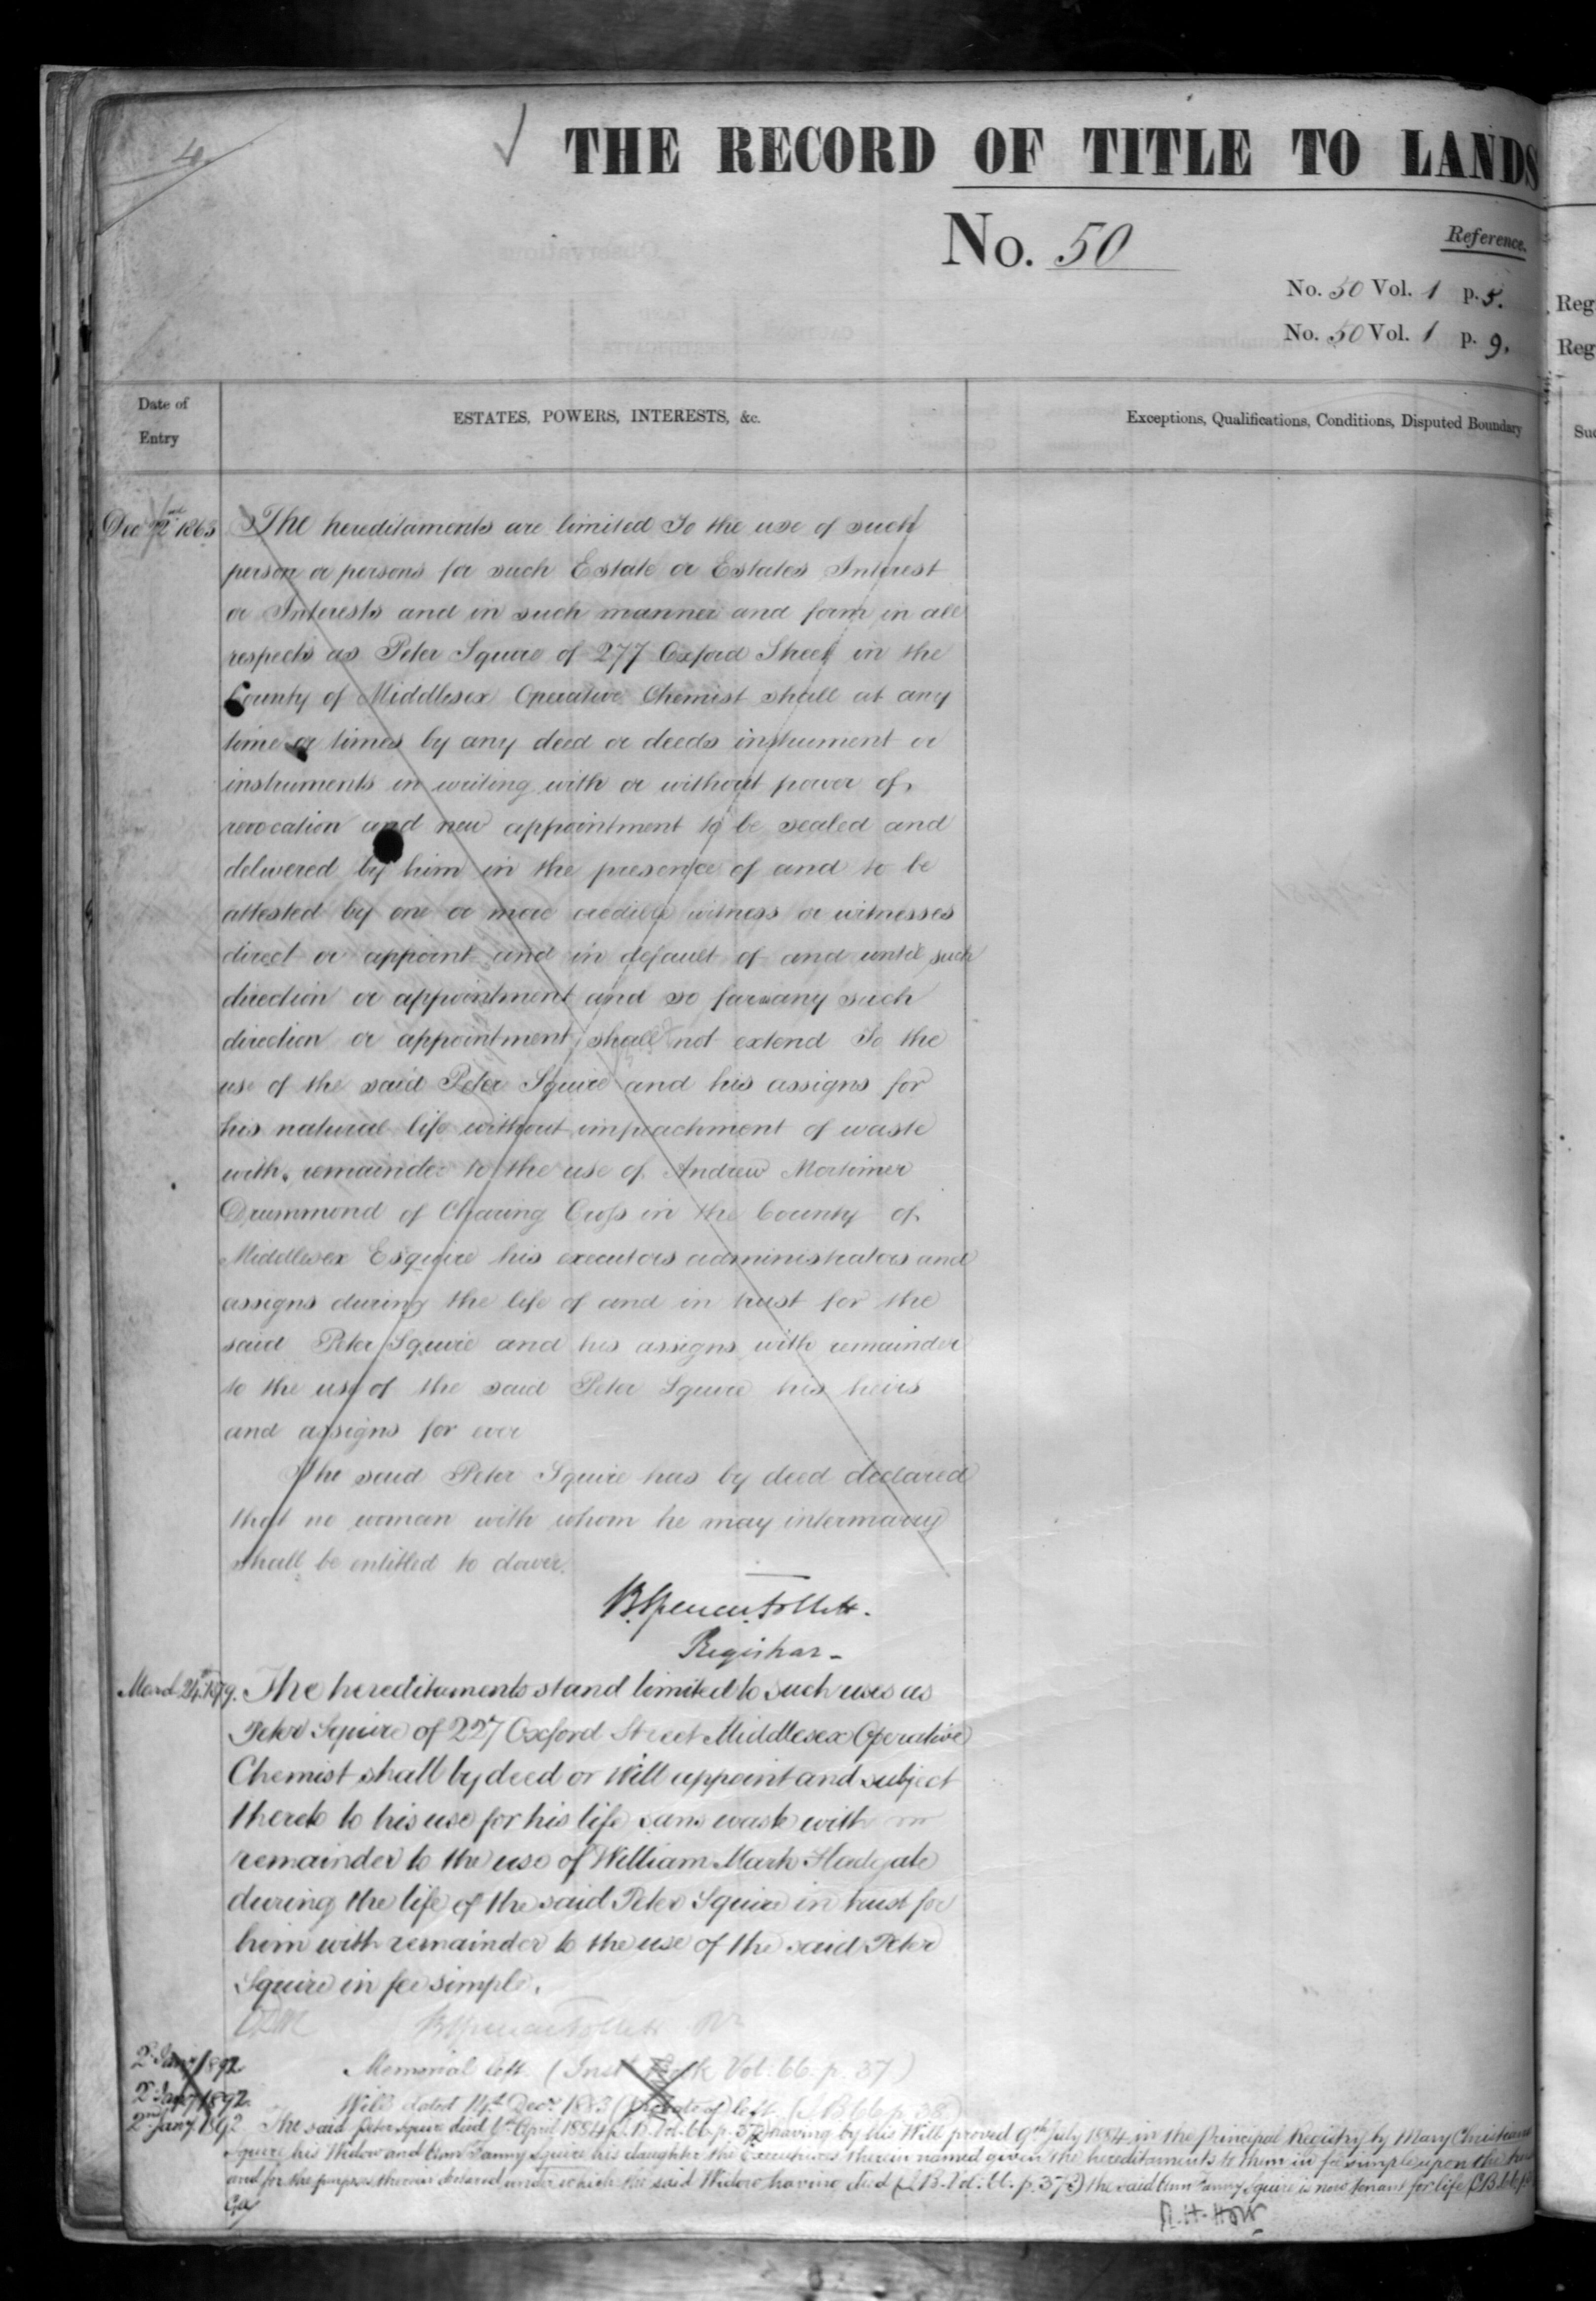 4
THE RECORD OF TITLE TO LANDS
No. 50
Reference.
No. 50 Vol. 1 p. 5.
No. 50 Vol. 1 p. 9.
Reg
Reg
Date of Entry
ESTATES, POWERS, INTERESTS, &c.
Exceptions, Qualifications, Conditions, Disputed Boundary
Dec 1863
The hereditaments are limited To the use of such
person or persons for such Estate or Estates Interest
or Interests and in such manner and form in all
respects as Peter Squire of 277 Oxford Street in the
County of Middlesex Operative Chemist shall at any
time or times by any deed or deeds instrument or
instruments in writing with or without power of
revocation and new appointment to be sealed and
delivered by him in the presence of and to be
attested by one or more credible witness or witnesses
direct or appoint and in default of and until such
direction or appointment and so far as any such
direction or appointment shall not extend To the
use of the said Peter Squire and his assigns for
his natural life without impeachment of waste
with remainder to the use of Andrew Mortimer
Drummond of Charing Cross in the County of
Middlesex Esquire his executors administrators and
assigns during the life of and in trust for the
said Peter Squire and his assigns with remainder
to the use of the said Peter Squire his heirs
and assigns for ever
The said Peter Squire has by deed declared
that no woman with whom he may intermarry
shall be entitled to dower.
B. Spencer Follett.
Registrar
March 24th 1879. The hereditaments stand limited to such uses as
Peter Squire of 227 Oxford Street Middlesex Operative
Chemist shall by deed or Will appoint and subject
thereto to his use for his life sans waste with
remainder to the use of William Mark
during the life of the said Peter Squire in trust for
him with remainder to the use of the said Peter
Squire in fee simple.
B Spencer Follett
2 Jany 1892 Memorial left. (Inst Book Vol. 66 p. 37)
2 Jany 1892. Will dated 14th Decr. 1883 (Probate of) left. (I B 66 p. 38)
2nd Jany 1892 The said Peter Squire died 6th April 1884 (I.B. Vol. 66. p. 37) having by his Will proved 9th July 1884 in the Principal Registry by Mary Christiana
Squire his Widow and Ann Fanny Squire his daughter the Executrixes therein named given the hereditaments to them in fee simple upon the
and for the purposes therein declared under which the said Widow having died (I.B. Vol. 66. p. 37) the said Ann Fanny Squire is now tenant for life
R. H. Holt